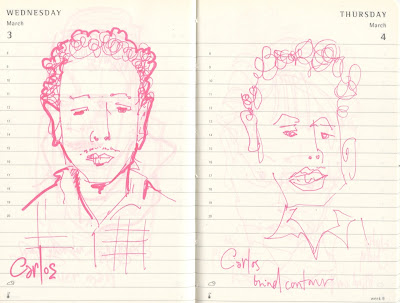 WEDNESDAY
March
3
Carlos
THURSDAY
March
4
Carlos
blind contour